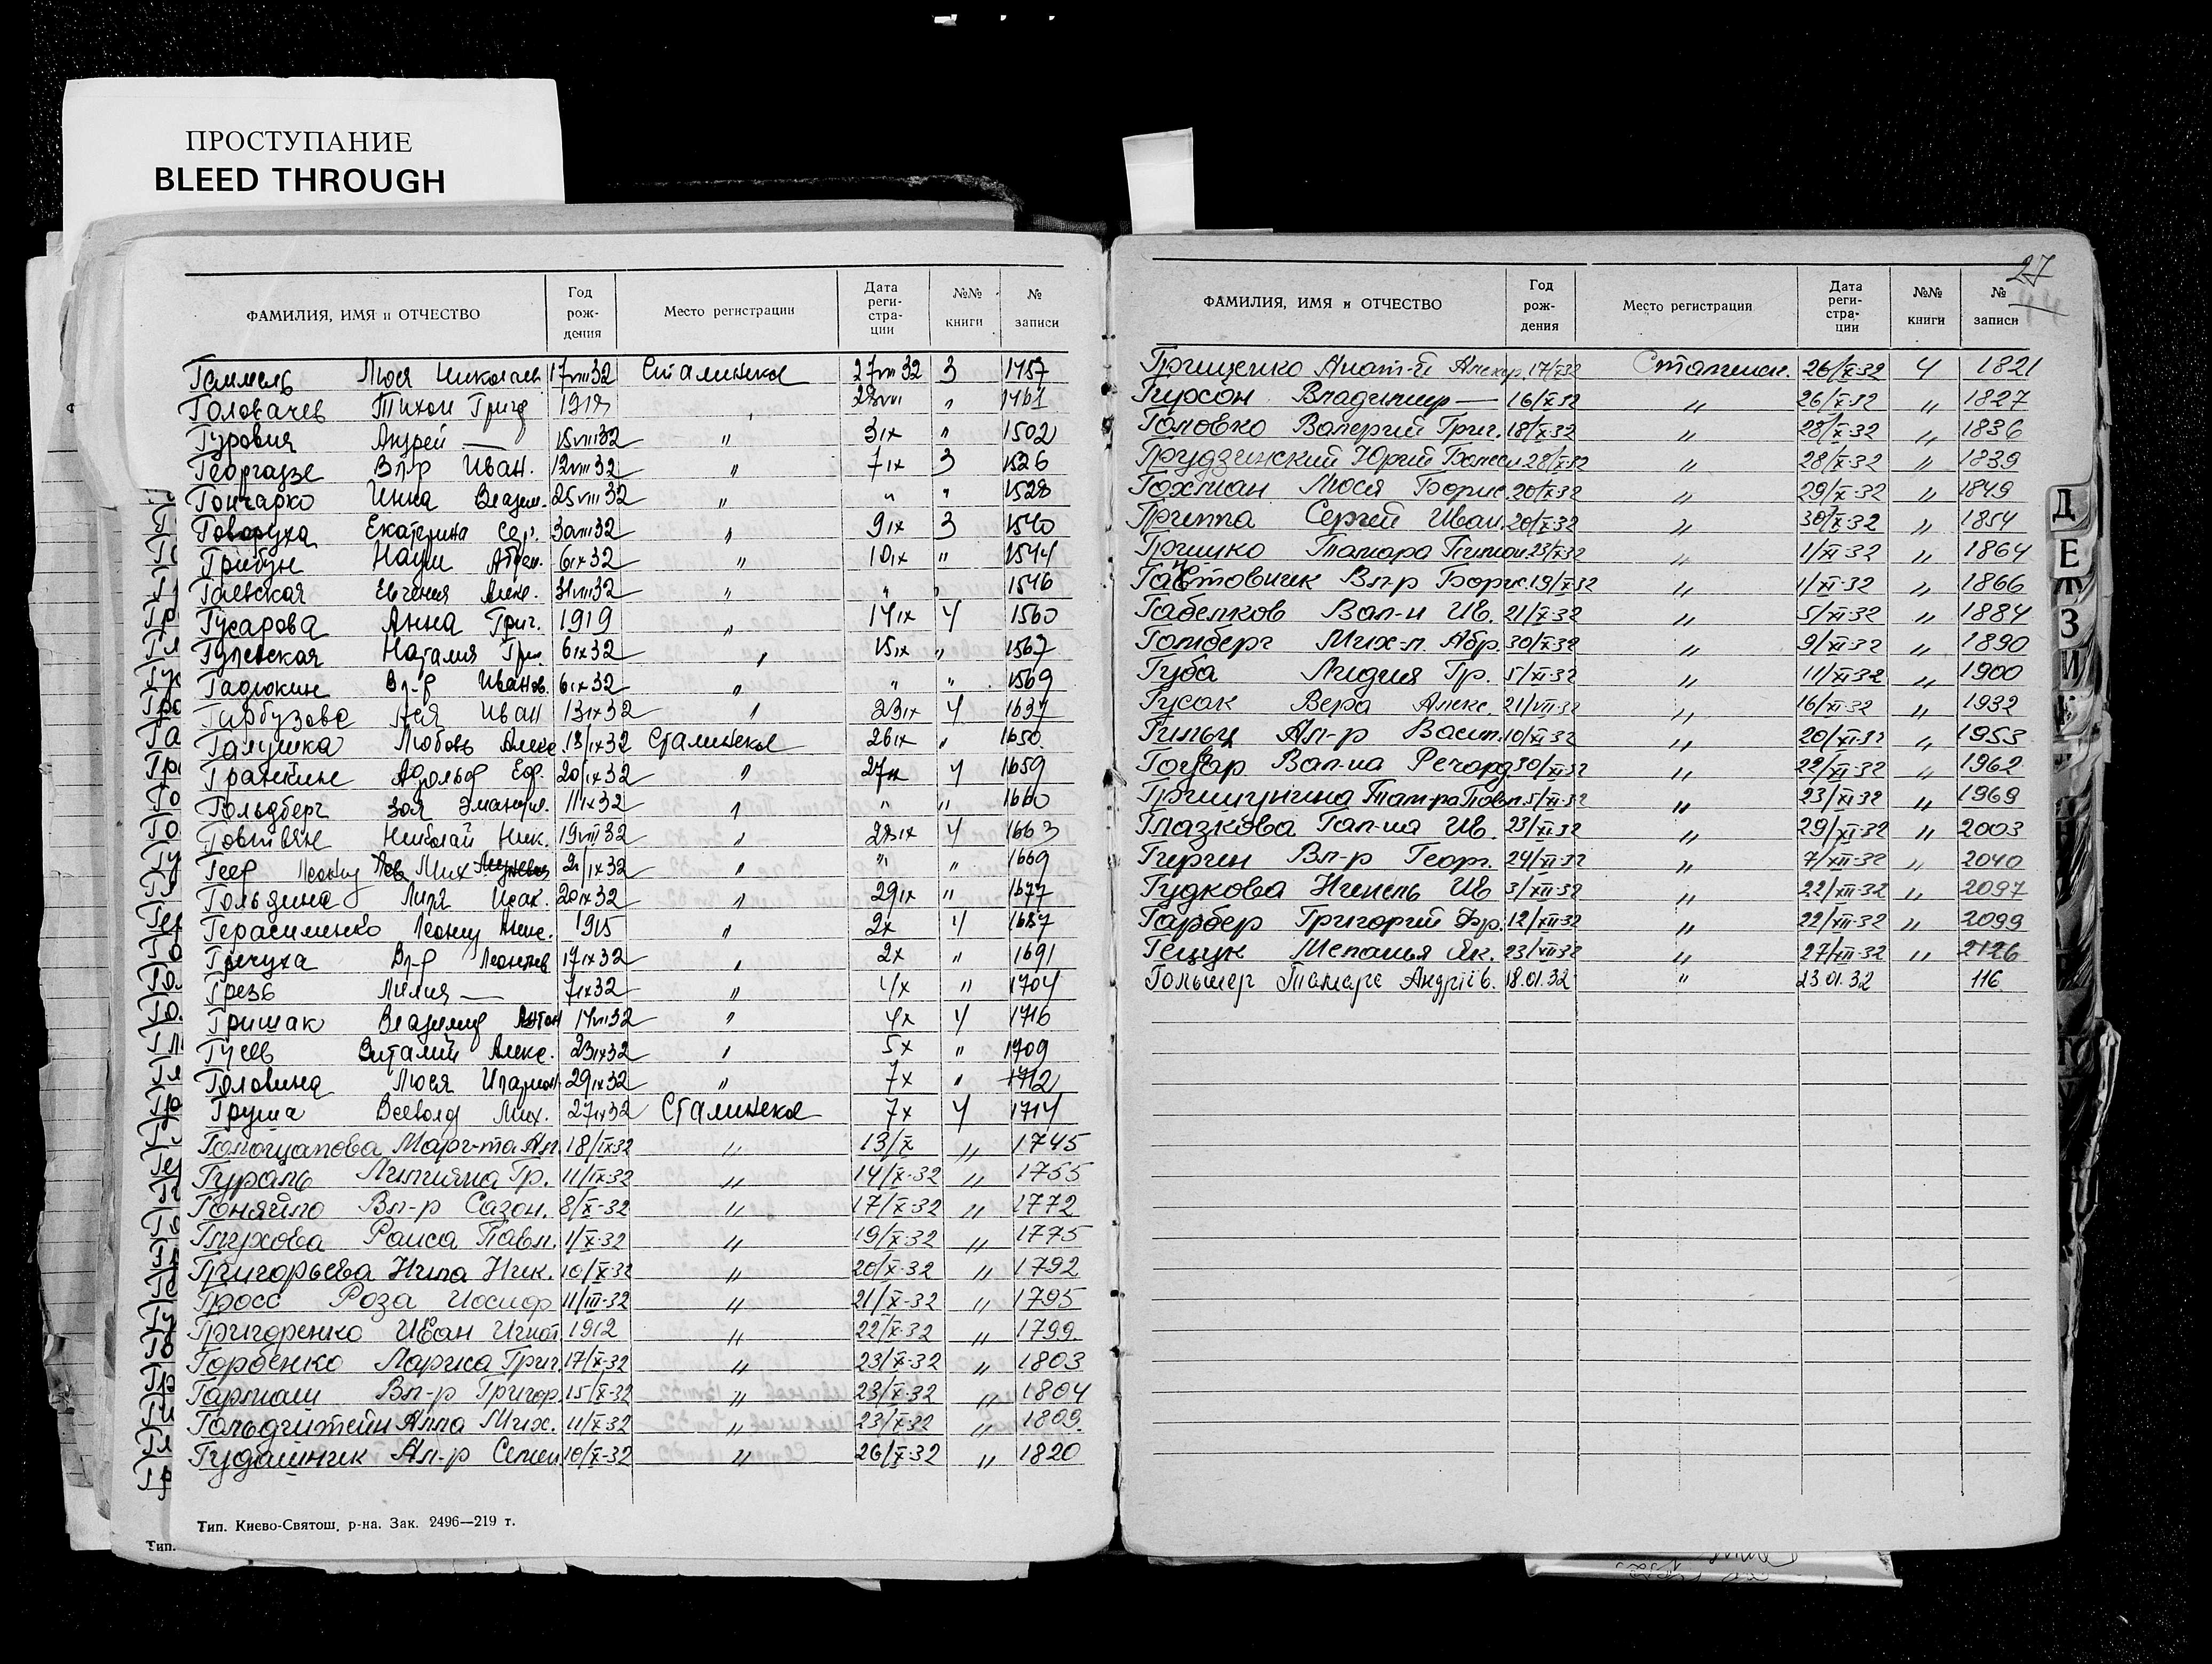 ПРОСТУПАНИЕ
BLEED THROUGH
ФАМИЛИЯ, ИМЯ и ОТЧЕСТВО Год рождения Место регистрации Дата регистрации №№ книги № записи
Гаммель Люся Николаев 17VIII32 Сталинская 27VIII32 3 1457
Головачев Тихон Григ 191 28VIII " 1461
Гуровия Андрей — 15VIII32 " 3IX " 1502
Георгадзе Вл-р Иван. 12VIII32 " 7IX 3 1526
Гончарко Инна Владим. 25VIII32 " " " 1528
Говоруха Екатерина Сер. 30VIII32 " 9IX 3 1540
Грибун Наум Абрам. 6IX32 " 10IX " 1544
Гаевская Евгения Алекс. 31VIII32 " " " 1546
Гусарова Анна Григ. 1919 " 14IX 4 1560
Гулевская Наталия Григ. 6IX32 " 15IX " 1567
Гадюкин Вл-р Иванов. 6IX32 " " " 1569
Гарбузова Ася Иван 13IX32 " 23IX 4 1637
Галушка Любовь Алекс. 18/IX32 Сталинская 26IX " 1650
Гранкин Адольф Еф. 20/IX32 " 27IX 4 1659
Гольдберг Зоя Эмануил. 11IX32 " " " 1660
Говтвян Николай Ник. 19VIII32 " 28IX 4 1663
Геер Леонид Мих 21/IX32 " " " 1669
Гользина Лиля Исак. 20IX32 " 29IX " 1677
Герасименко Леонид Алекс. 1915 " 2X 4 1687
Гречуха Вл-р Леонтьев 17IX32 " 2X " 1691
Грезь Лилия — 7IX32 " 4X " 1704
Гришак Владимир Антон 14VIII32 " 4X 4 1716
Гусев Виталий Алекс. 23IX32 " 5X " 1709
Головина Люся Иларион 29IX32 " 7X " 1712
Груша Всеволод Мих. 27IX32 Сталинская 7X 4 1714
Голощапова Марг-та Ал. 18/IX32 " 13/X " 1745
Гураль Лилияна Гр. 11/IX-32 " 14/X-32 " 1755
Гоняйло Вл-р Сазон. 8/X-32 " 17/X-32 " 1772
Глухова Раиса Павл. 1/X-32 " 19/X-32 " 1775
Григорьева Нина Ник. 10/X-32 " 20/X-32 " 1792
Гросс Роза Иосиф 11/III-32 " 21/X-32 " 1795
Григоренко Иван Игнат 1912 " 22/X-32 " 1799
Горбенко Лариса Григ 17/X-32 " 23/X-32 " 1803
Гармаш Вл-р Григор. 15/X-32 " 23/X-32 " 1804
Гольдштейн Алла Мих. 11/X-32 " 23/X-32 " 1809
Гудашник Ал-р Семен 10/X-32 " 26/X-32 " 1820
Тип. Киево-Святош, р-на. Зак. 2496—219 т.
Тип.
27
ФАМИЛИЯ, ИМЯ и ОТЧЕСТВО Год рождения Место регистрации Дата регистрации №№ книги № записи
Грищенко Анат-й Алекср. 17/X32 Сталинск. 26/X-32 4 1821
Гирсон Владимир — 16/X-32 " 26/X-32 " 1827
Головко Валерий Григ. 18/X-32 " 28/X-32 " 1836
Грудзинский Юрий Болесл 28/X-32 " 28/X-32 " 1839
Гохман Люся Борис 20/X-32 " 29/X-32 " 1849
Гриппа Сергей Иван. 20/X-32 " 30/X-32 " 1854
Гришко Тамара Тимом 23/X-32 " 1/XI-32 " 1864
Вл-р Борис. 19/X-32 " 1/XI-32 " 1866
Габелков Вал-н Ив. 21/X-32 " 5/XI-32 " 1884
Гомберг Мих-л. Абр. 30/X-32 " 9/XI-32 " 1890
Губа Лидия Гр. 5/XI-32 " 11/XI-32 " 1900
Гусак Вера Алекс. 21/VII-32 " 16/XI-32 " 1932
Гильц Ал-р Васил. 10/XI-32 " 20/XI-32 " 1953
Вал-на Речард 30/XI-32 " 22/XI-32 " 1962
Гришунина Там-ра Павл. 5/XI-32 " 23/XI-32 " 1969
Глазкова Гал-на Ив. 23/XI-32 " 29/XI-32 " 2003
Гиргин Вл-р Георг. 24/XI-32 " 7/XII-32 " 2040
Гудкова Нинель Ив 3/XII-32 " 22/XII-32 " 2097
Гарбер Григорий Фр. 12/XII-32 " 22/XII-32 " 2099
Гецук Меланья Як. 23/VII-32 " 27/XII-32 " 2126
Гольмер Тамара Андріїв. 18.01.32 " 23.01.32 116
Д
Е
Ж
З
И
К